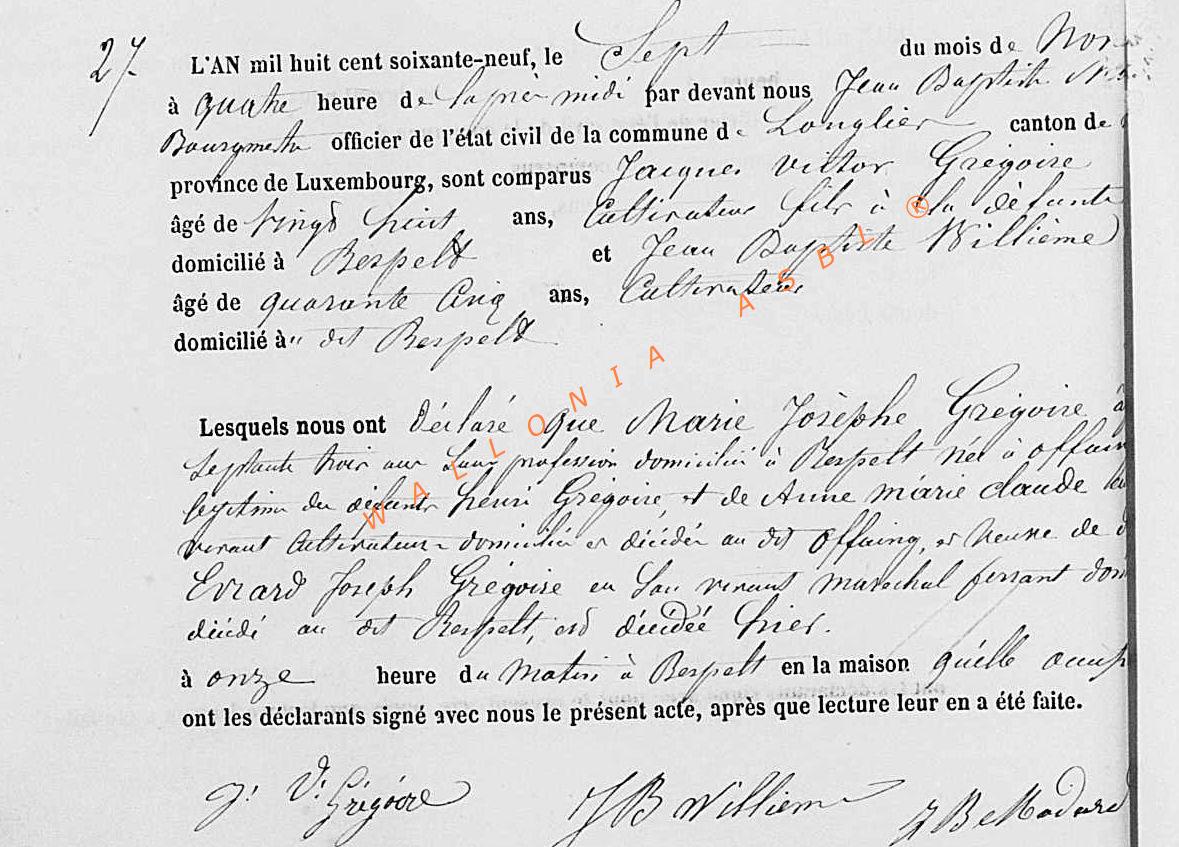 27.
L'AN mil huit cent soixante-neuf, le Sept du mois de Nov
à quatre heure de laprès midi par devant nous Jean Baptiste
Bourgmestre officier de l'état civil de la commune de Longlier canton de
province de Luxembourg, sont comparus Jacques Victor Grégoire
âgé de vingt huit ans, Cultivateur fils à la défunte
domicilié à Respelt et Jean Baptiste Willième
âgé de quarante Cinq ans, Cultivateur
domicilié à dit Respelt
Lesquels nous ont déclaré que Marie Josèphe Grégoire âg
septante trois ans sans profession domicilié à Respelt née à Offain
légitime du défunt henri Grégoire, et de Anne marie claude
vivant Cultivateur domicilié et décédée au dit Offaing, et veuve de
Evrard Joseph Grégoire en son vivant marechal ferrant dom
décédé au dit Respelt, est décédée hier.
à onze heure du Matin à Respelt en la maison qu'elle occup
ont les déclarants signé avec nous le présent acte, après que lecture leur en a été faite.
j. V. Grégoire JB Willieme JBe Modard
WALLONIA ASBL ®